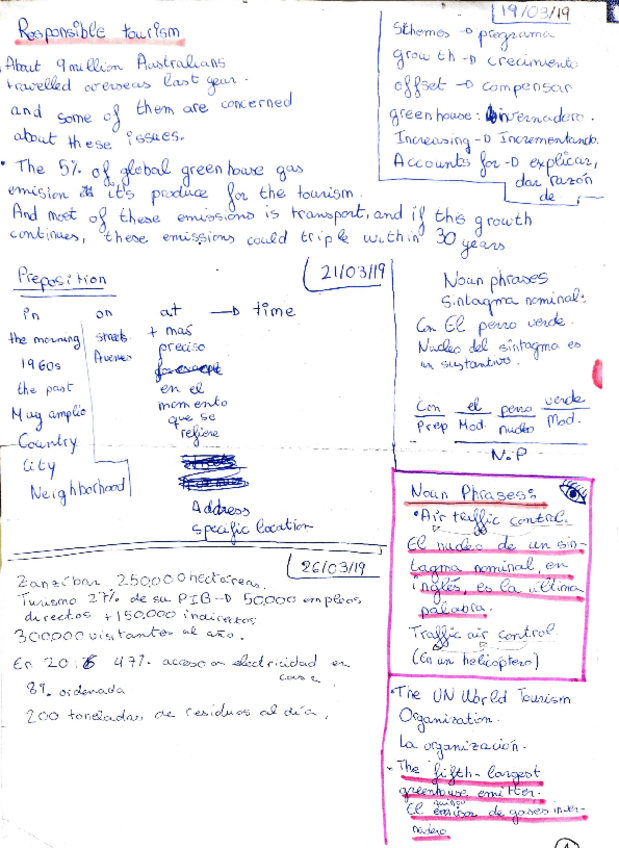 Responsible tourism
About 9 million Australians
travelled overseas last year.
and some of them are concerned
about these issues.
• The 5% of global greenhouse gas
emision it's produce for the tourism.
And most of these emissions is transport, and if this growth
continues, these emissions could triple within 30 years
19/03/19
Sthemes → programa
growth → crecimiento
offset → compensar
greenhouse: invernadero.
Increasing → Incrementando.
Accounts for → explicar,
dar razón
de
21/03/19
Preposition
in
the morning
1960s
the past
Muy amplio
Country
City
Neighborhood
on
streets
Avenues
at → time
+ más
preciso
en el
momento
que se
refiere
Address
specific location
Noun phrases
Sintagma nominal:
Con El perro verde.
Nucleo del sintagma es
un sustantivo.
Con el perro verde
Prep Mod. nucleo Mod.
N.P
Noun Phrases:
• Air traffic control.
El nucleo de un sin-
tagma nominal, en
inglés, es la última
palabra.
Traffic air control.
(En un helicóptero)
• The UN World Tourism
Organization.
La organización.
- The fifth-largest
greenhouse emitter.
El quinto
emisor de gases inver-
nadero
26/03/19
Zanzíbar 250,000 hectáreas.
Turismo 27% de su PIB → 50,000 empleos
directos + 150,000 indirectos
300,000 visitantes al año.
47% acceso a electricidad en
casa.
8% ordenada
200 toneladas de residuos al día.